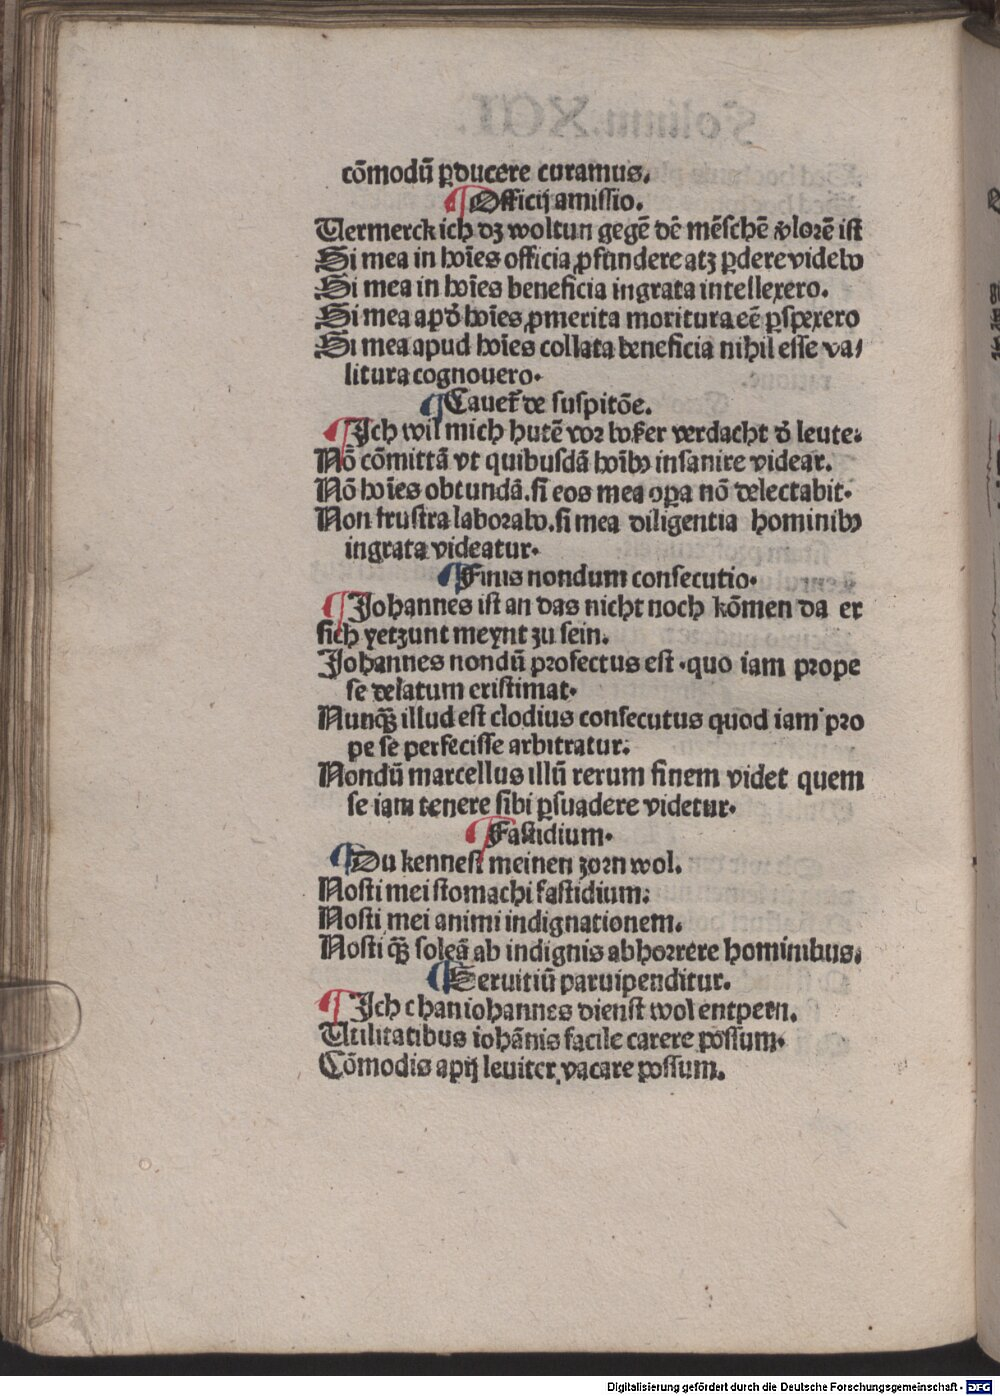 cōmodū ꝑducere curamus.
¶ Officij amissio.
Uermerck ich dz woltun gegē dē mēschē ꝟlorē ist
Si mea in hoīes officia ꝓfundere atqꝫ ꝑdere videbo
Si mea in hoīes beneficia ingrata intellexero.
Si mea apd̕ hoīes ꝓmerita moritura eē ꝑspexero
Si mea apud hoīes collata beneficia nihil esse va⸗
litura cognouero.
¶ Cauet̄ de suspitōe.
¶ Ich wil mich hutē vor boser verdacht d̕ leute.
Nō cōmittā vt quibusdā hoībꝰ insanire videar.
Nō hoīes obtundā. si eos mea oꝑa nō delectabit.
Non frustra laborabo. si mea diligentia hominibꝰ
ingrata videatur.
¶ Finis nondum consecutio.
¶ Johannes ist an das nicht noch kōmen da er
sich yetzunt meynt zu sein.
Johannes nondū profectus est. quo iam prope
se delatum existimat.
Nunqꝫ̄ illud est clodius consecutus quod iam pro
pe se perfecisse arbitratur.
Nondū marcellus illū rerum finem videt quem
se iam tenere sibi ꝑsuadere videtur.
¶ Fastidium.
¶ Du kennest meinen zorn wol.
Nosti mei stomachi fastidium.
Nosti mei animi indignationem.
Nosti qꝫ̄ soleā ab indignis abhorrere hominibus.
¶ Seruitiū paruipenditur.
¶ Ich chan iohannes dienst wol entpern.
Utilitatibus iohānis facile carere possum.
Cōmodis apꝛij leuiter vacare possum.
Folium. XCI.
Digitalisierung gefördert durch die Deutsche Forschungsgemeinschaft - DFG